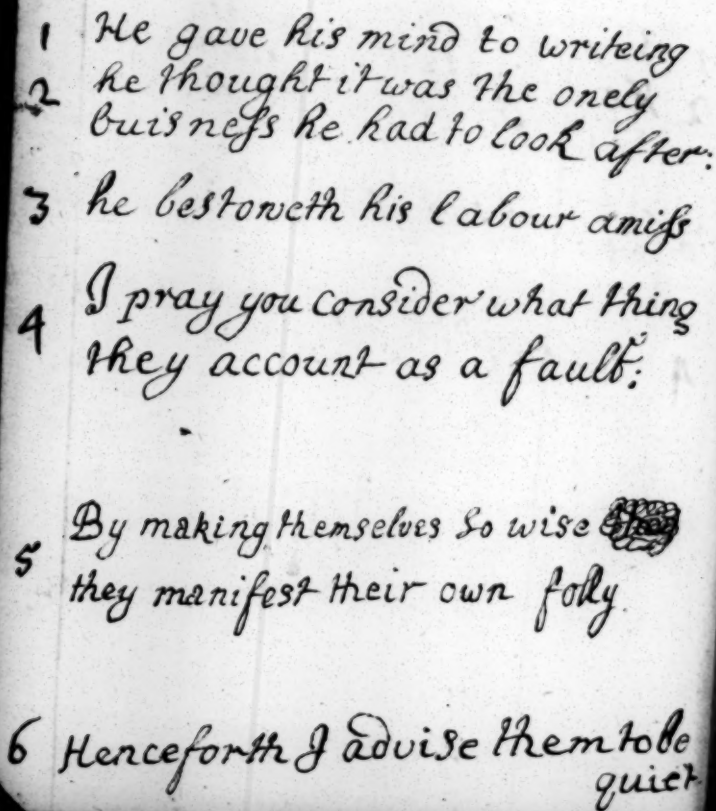 1 He gave his mind to writeing
2 he thought it was the onely
buisness he had to look after:
3 he bestoweth his labour amiss
4 I pray you consider what thing
they account as a fault:
5 By making themselves so wise
they manifest their own folly
6 Henceforth I advise them to be
quiet